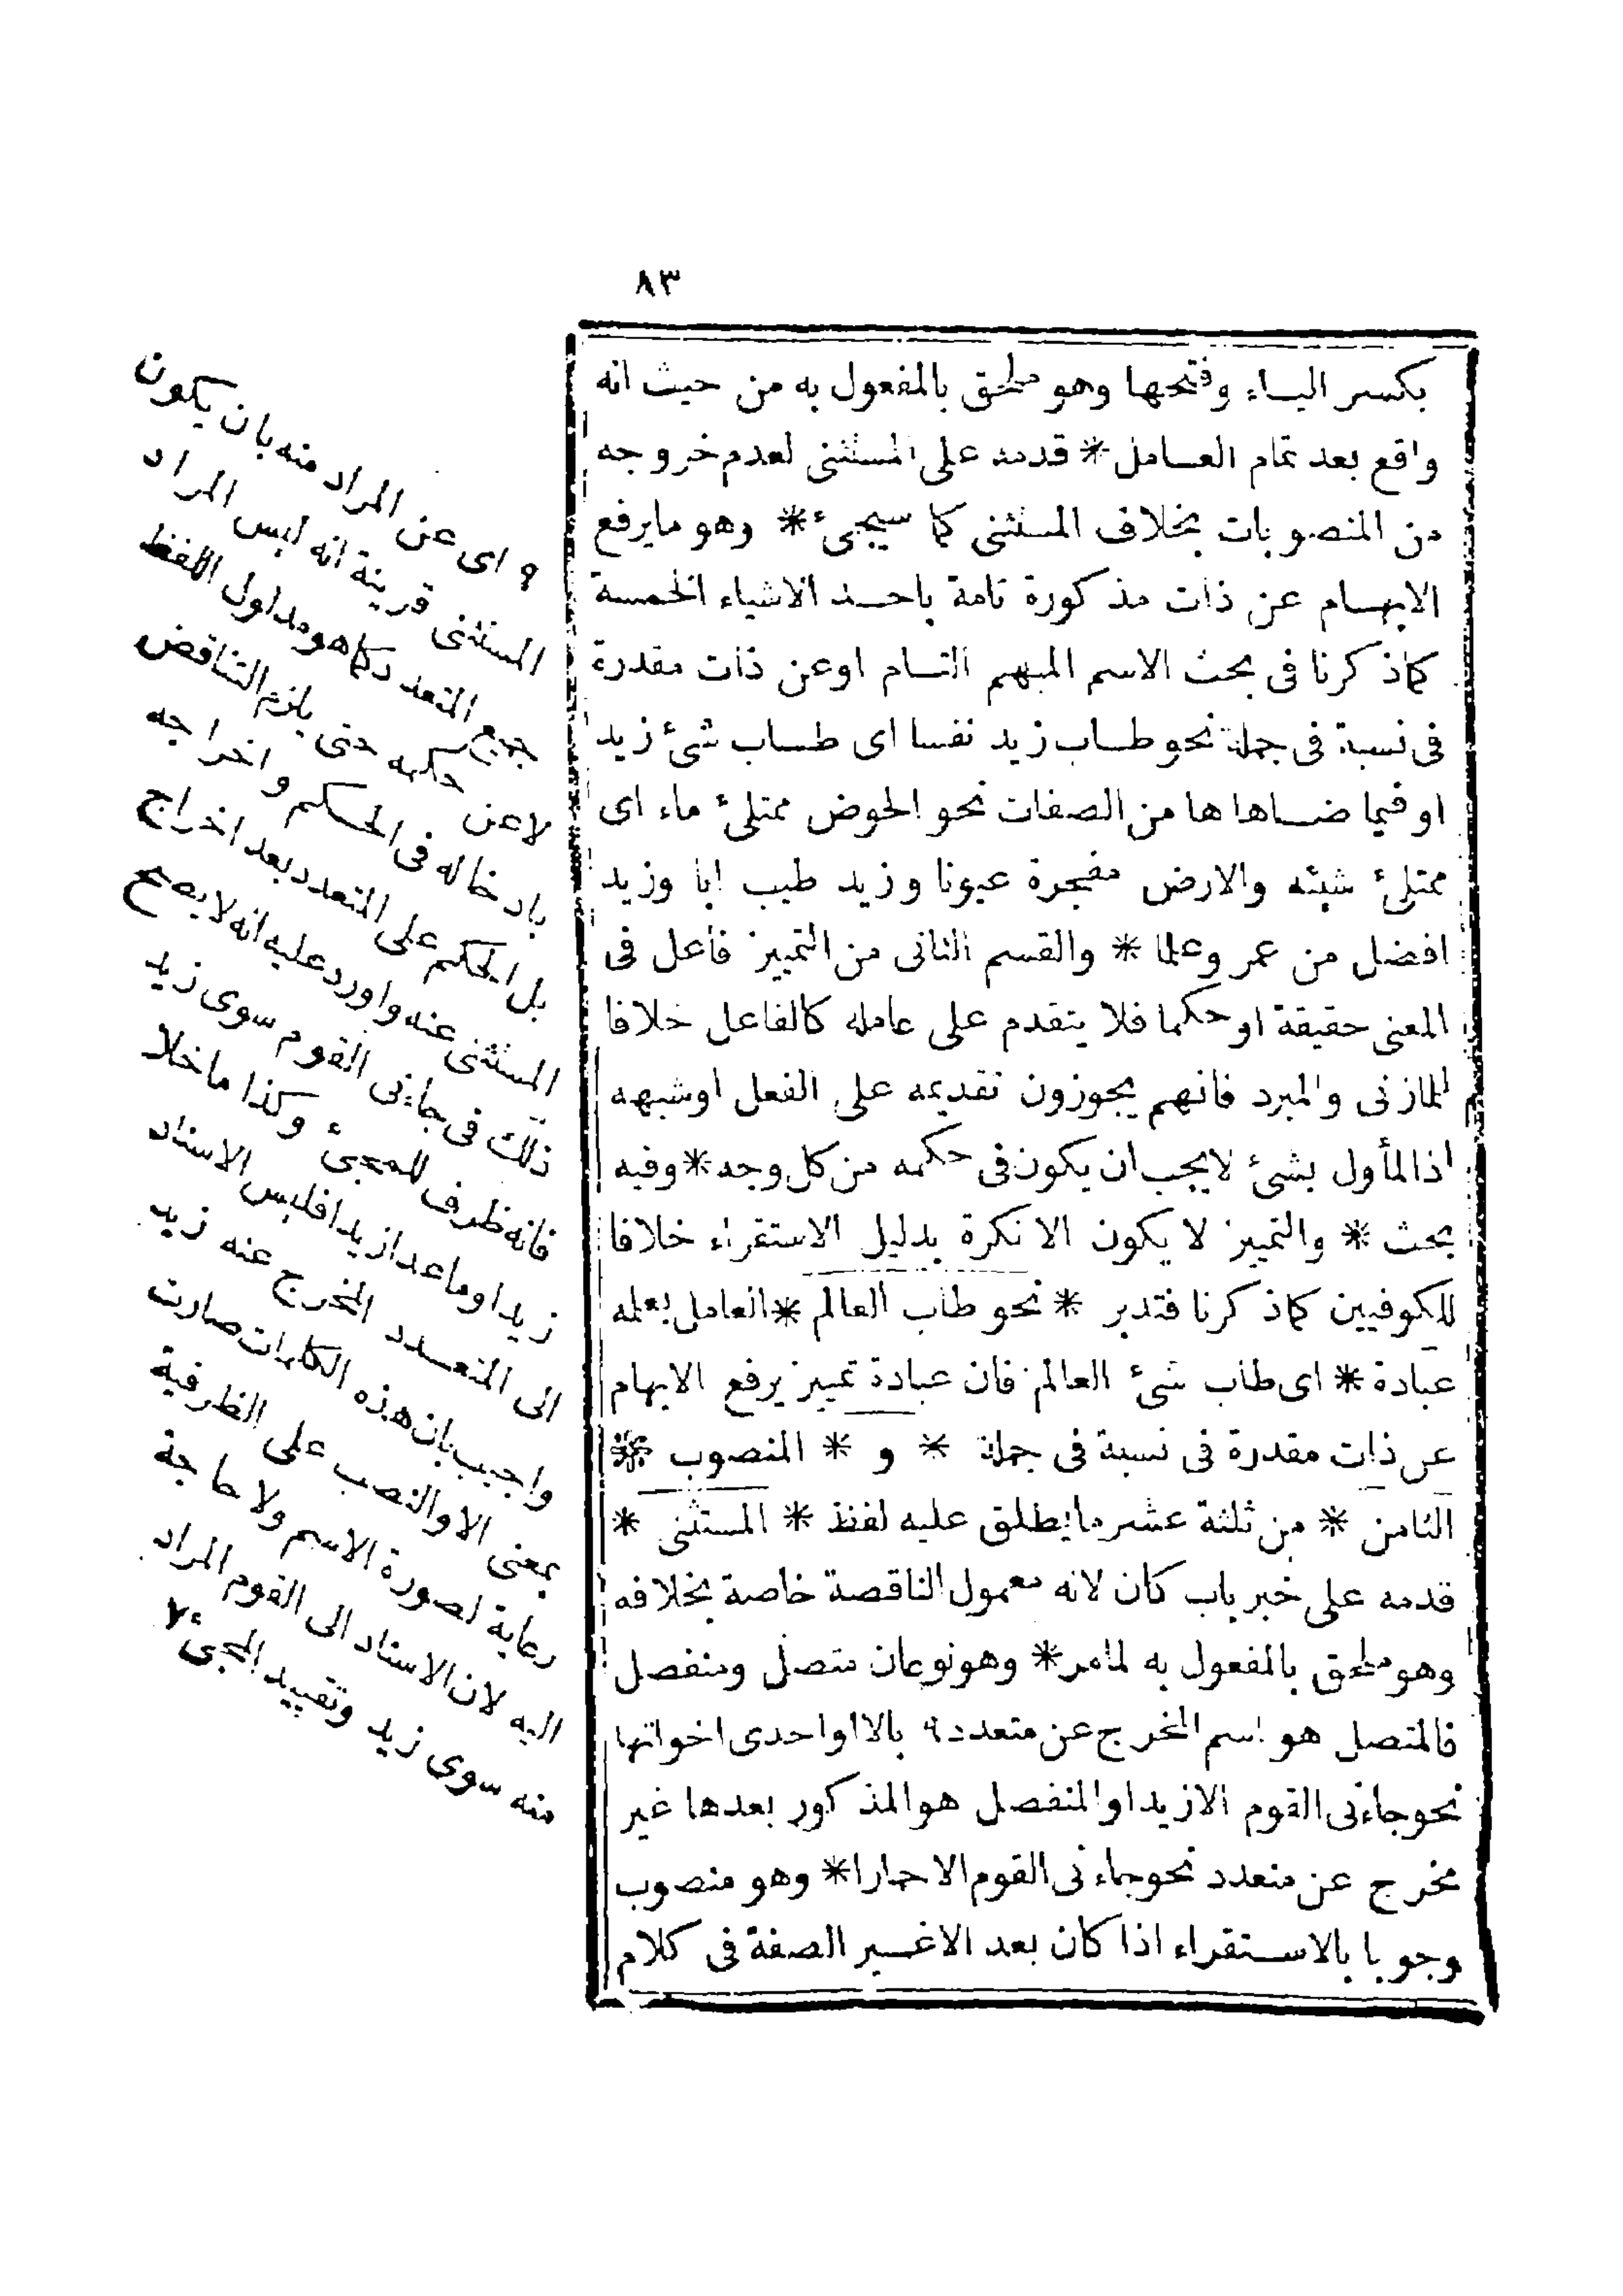 ٨٣
بكسر اليساء وفتحها وهو ملحق بالمفعول به من حيث انه
واقع بعد تمام العسامل * قدمه على المستثنى لعدم خروجه
من المنصوبات بخلاف المستثنى كما سيجئ * وهو مايرفع
الابهسام عن ذات مذكورة تامة باحسد الاشياء الخمسة
كماذكرنا فى بحث الاسم المبهم التسام اوعن ذات مقدرة
فى نسبة فى جملة نحو طساب زيد نفسا اى طساب شئ زيد
او فيما ضساهاها من الصفات نحو الحوض ممتلئ ماء اى
ممتلئ شيئه والارض مفجرة عيونا وزيد طيب ابا وزيد
افضل من عمر وعلما * والقسم الثانى من التمييز فاعل فى
المعنى حقيقة او حكما فلا يتقدم على عامله كالفاعل خلافا
للمازنى والمبرد فانهم يجوزون تقديمه على الفعل اوشبهه
اذالمأول بشئ لايجب ان يكون فى حكمه من كل وجه * وفيه
بحث * والتمييز لا يكون الا نكرة بدليل الاستقراء خلافا
للكوفيين كماذكرنا فتدبر * نحو طاب العالم * العامل بعلمه
عبادة * اى طاب شئ العالم فان عبادة تمييز يرفع الابهام
عن ذات مقدرة فى نسبة فى جملة * و * المنصوب *
الثامن * من ثلثة عشر مايطلق عليه لفظ * المستثنى *
قدمه على خبر باب كان لانه معمول الناقصة خاصة بخلافه
وهو ملحق بالمفعول به لمامر * وهو نوعان متصل ومنفصل
فالمتصل هو اسم المخرج عن متعدد ٩ بالا اواحدى اخواتها
نحوجاءنى القوم الازيدا والمنفصل هوالمذكور بعدها غير
مخرج عن متعدد نحوجاءنى القوم الاحمارا * وهو منصوب
وجوبا بالاستقراء اذا كان بعد الاغسير الصفة فى كلام
٩ اى عن المراد منه بان يكون
المستثنى قرينة انه ليس المراد
جميع المتعدد كما هو مدلول اللفظ
لاعن حكمه حتى يلزم التناقض
بادخاله فى الحكم واخراجه
بل الحكم على المتعدد بعد اخراج
المستثنى عنه واورد عليه انه لايصح
ذلك فى جاءنى القوم سوى زيد
فانه ظرف للمجئ وكذا ماخلا
زيدا وماعدا زيدا فليس الاسناد
الى المتعسدد المخرج عنه زيد
واجيب بان هذه الكلمات صارت
بمعنى الا والنصب على الظرفية
رعاية لصورة الاسم ولا حاجة
اليه لان الاسناد الى القوم المراد
منه سوى زيد وتقييد المجئ ٧